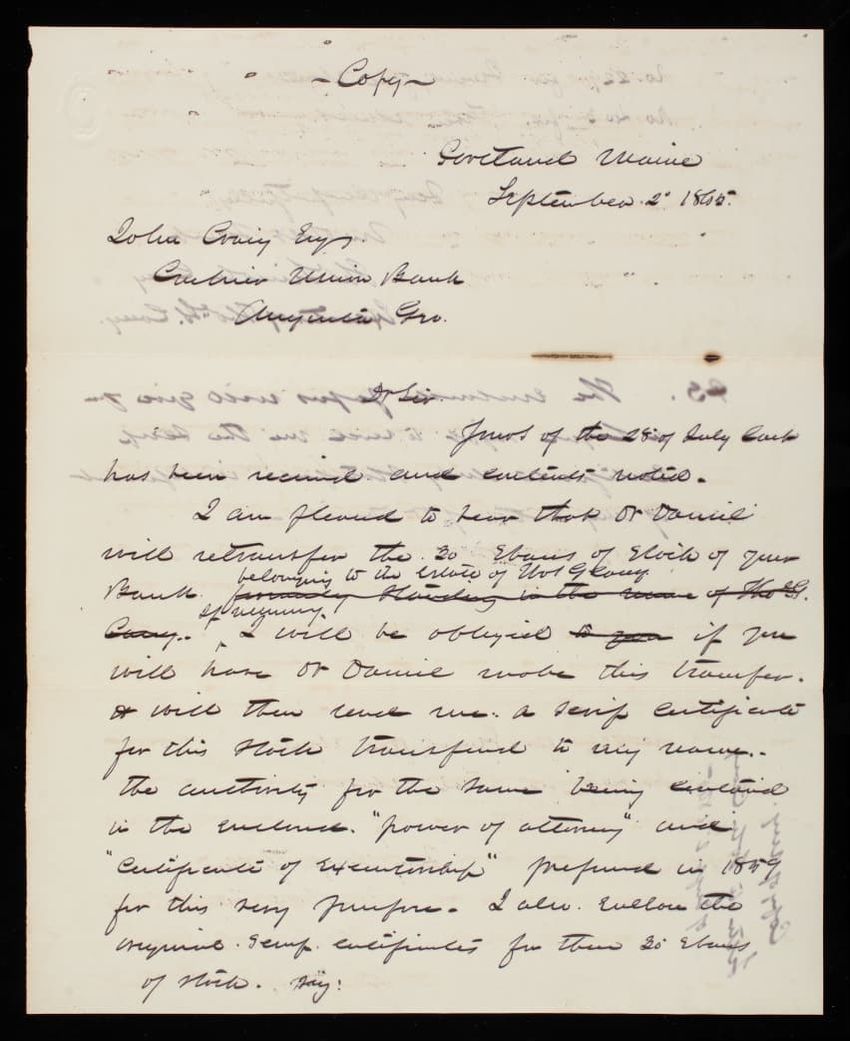 -Copy-
Portland Maine
September 2d 1865.
John Craig Esqr.
Cashier Union Bank
Augusta Geo.
Dr Sir.
Yours of the 28 of July last
has been received and contents noted.
I am pleased to hear that Dr Daniel
will retransfer the 30 Shares of Stock of your
belonging to the Estate of Thos G Casey
Bank formerly standing in the name of Thos G.
Casey. I will be obliged to you if you
will have Dr Daniel make this transfer.
& will then send me. a scrip certificate
for this stock transferred to my name..
the authority for the same being contained
in the enclosed. "power of attorney" and
"Certificate of Executorship" prepared in 1859
for this very purpose. I also. enclose the
original. Scrip. certificates for these 30 Shares
of stock. say: